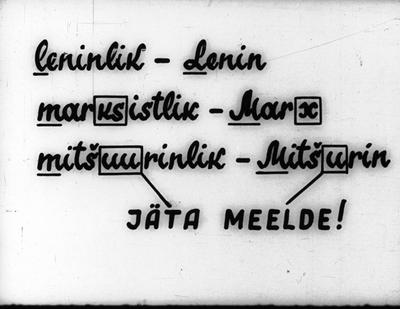 leninlik - Lenin
marksistlik - Marx
mitšuurinlik - Mitšurin
JÄTA MEELDE!